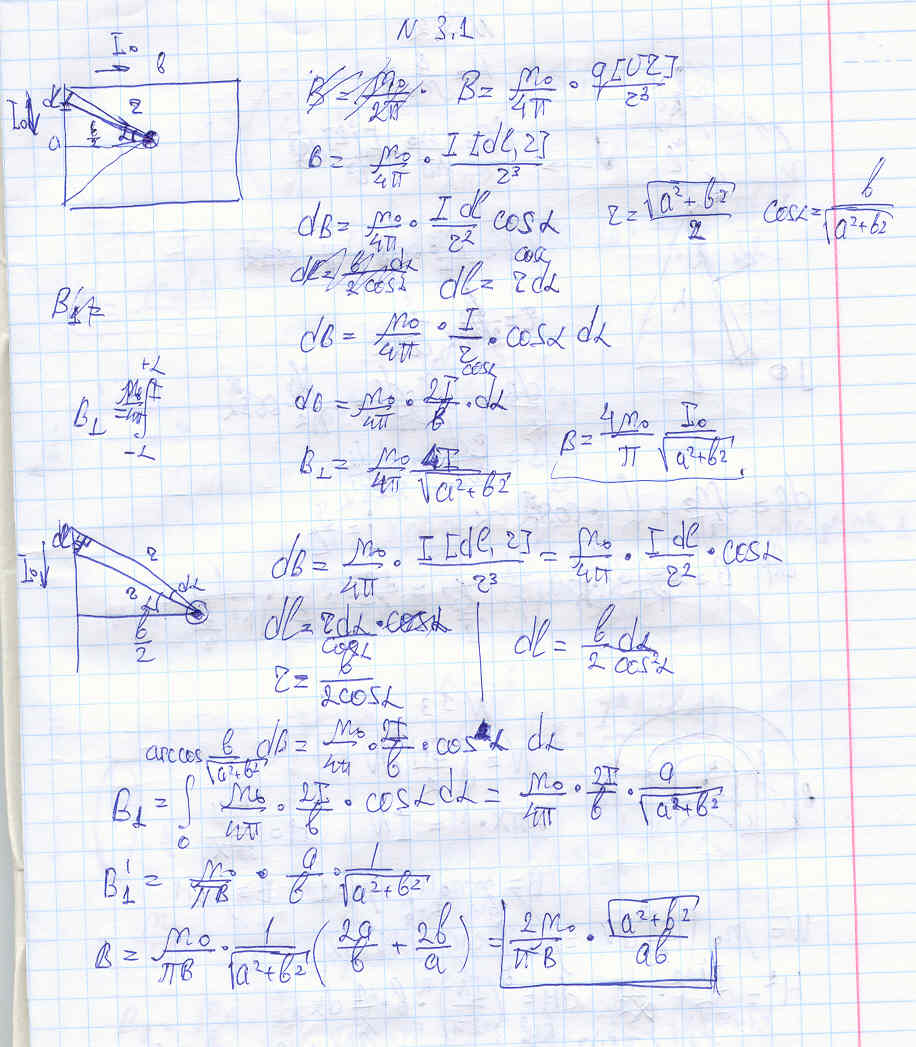 N 3.1
I₀ b
dl r
I₀ a b/2 α
B = μ₀/2π · B = μ₀/4π · q[υr]/r³
B = μ₀/4π · I[dl, r]/r³
dB = μ₀/4π · I dl/r² cosα r = √(a²+b²)/2 cosα = b/√(a²+b²)
dl = r dα/cosα
dB = μ₀/4π · I/r · cosα dα
dB = μ₀/4π · 2I/b · cosα · dα
B⊥ = μ₀/4π 4I/√(a²+b²) B = 4μ₀/π I₀/√(a²+b²)
dl r dα
I₀ r α
b/2
dB = μ₀/4π · I[dl, r]/r³ = μ₀/4π · I dl/r² · cosα
dl = r dα/cosα dl = b/2 dα/cos²α
r = b/2cosα
dB = μ₀/4π · 2I/b · cosα dα
B⊥ = ∫₀^(arccos b/√(a²+b²)) μ₀/4π · 2I/b · cosα dα = μ₀/4π · 2I/b · a/√(a²+b²)
B⊥' = μ₀/πB · a/b · 1/√(a²+b²)
B = μ₀/πB · 1/√(a²+b²) (2a/b + 2b/a) = 2μ₀/πB · √(a²+b²)/ab